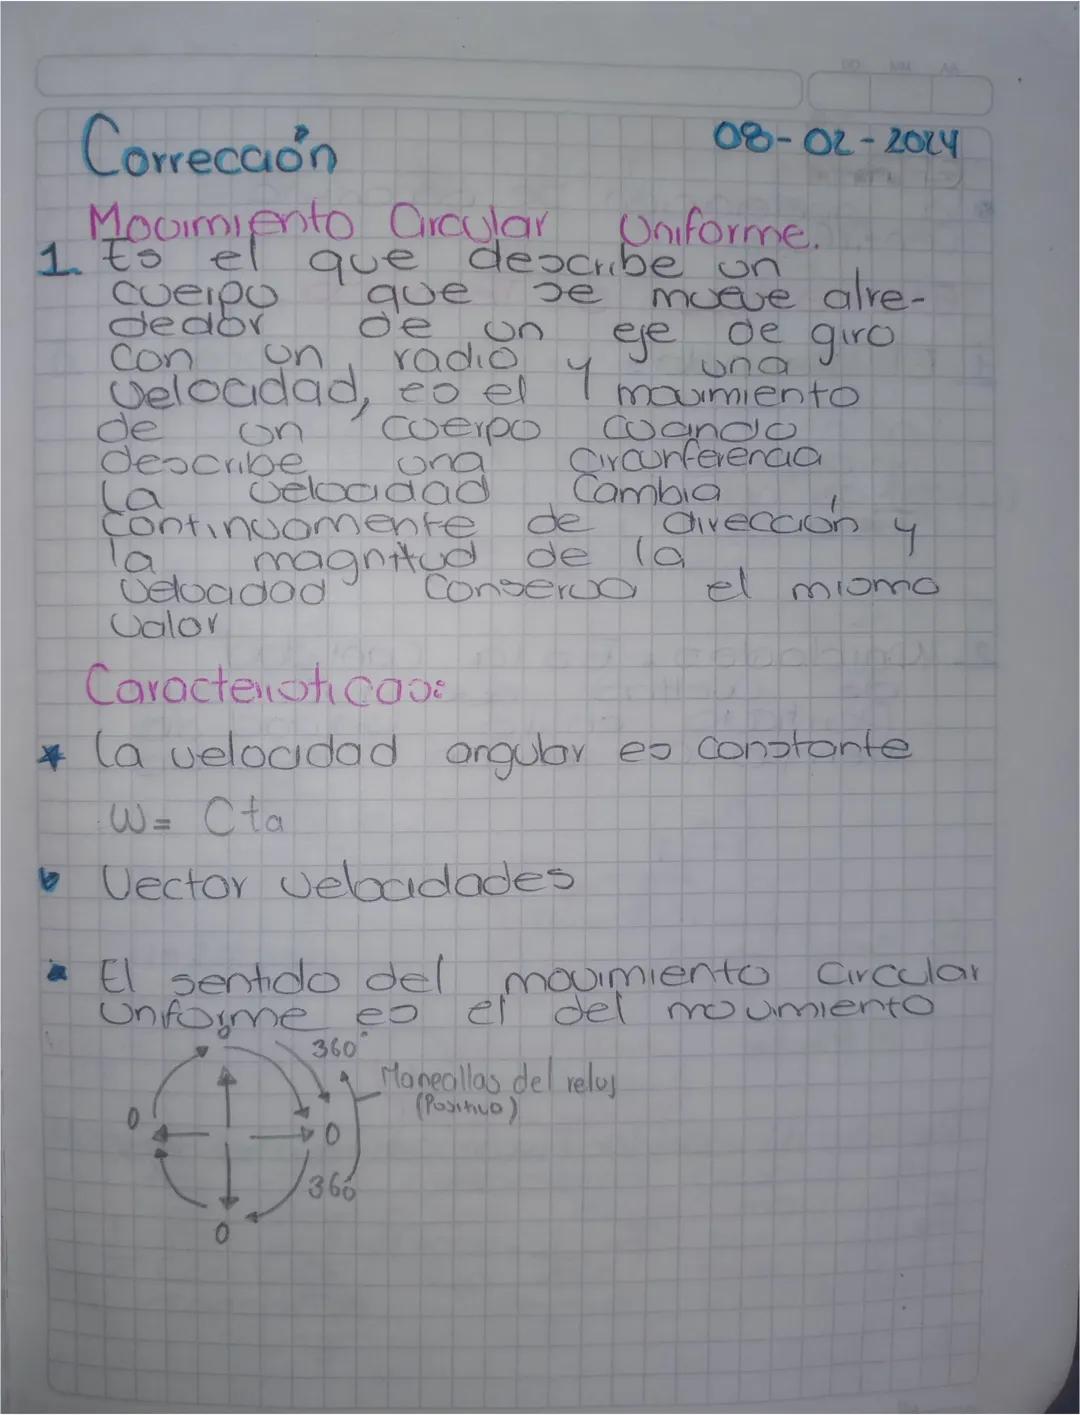 DD MM AA
Corrección 08-02-2024
Movimiento Circular Uniforme.
1. Es el que describe un
cuerpo que se mueve alre-
dedor de un eje de giro
con un radio y una
velocidad, es el movimiento
de un cuerpo cuando
describe una circunferencia
La velocidad cambia
continuamente de dirección y
la magnitud de la
velocidad conserva el mismo
valor
Caracteristicas:
* La velocidad angular es constante
W = Cta
Vector velocidades
El sentido del movimiento circular
Uniforme es el del movimiento
0 360°
Manecillas del reloj
(Positivo)
0 0
360
0